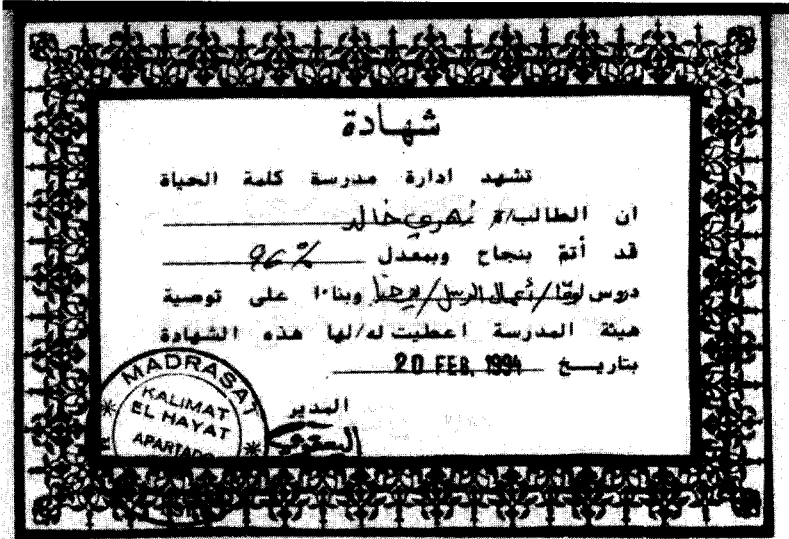 شهادة
تشهد ادارة مدرسة كلمة الحياة
ان الطالب/ة نهري خالد
قد أتمّ بنجاح وبمعدل 96%
دروس لوقا/أعمال الرسل/يوحنا وبناءا على توصية
هيئة المدرسة اعطيت له/لها هذه الشهادة
بتاريخ 20 FEB. 1994
المدير
MADRASAT
KALIMAT
EL HAYAT
APARTADO